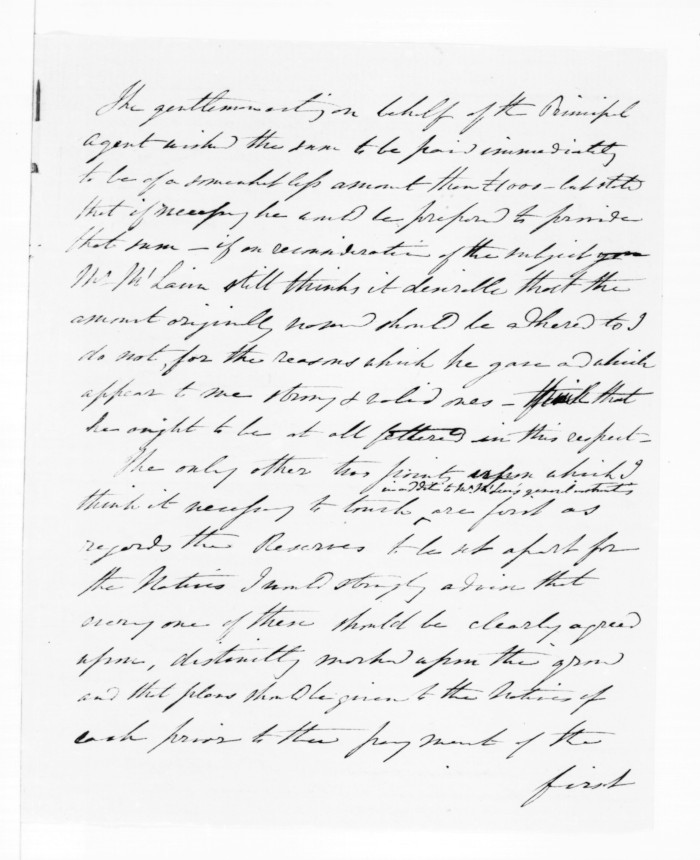 The gentleman acting on behalf of the Principal
agent wished the sum to be paid immediately
to be of a somewhat less amount than £1000 - but stated
that if necessary he would be prepared to provide
that sum - if on reconsideration of the subject you
Mr. McLean still thinks it desirable that the
amount originally named should be adhered to I
do not, for the reasons which he gave and which
appear to me strong & valid ones - think that
he ought to be at all fettered in this respect -
The only other two points upon which I
in addition to Mr. McLean's general instructions
think it necessary to touch, are first as
regards the Reserves to be set apart for
the Natives I would strongly advise that
every one of these should be clearly agreed
upon, distinctly marked upon the ground
and that plans should be given to the Natives of
each prior to the payment of the
first